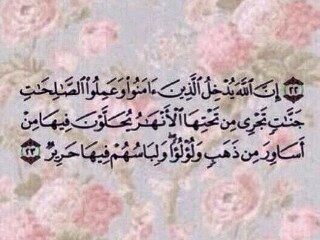 ﴿٢٢﴾ إِنَّ ٱللَّهَ يُدْخِلُ ٱلَّذِينَ ءَامَنُوا۟ وَعَمِلُوا۟ ٱلصَّـٰلِحَـٰتِ
جَنَّـٰتٍ تَجْرِى مِن تَحْتِهَا ٱلْأَنْهَـٰرُ يُحَلَّوْنَ فِيهَا مِنْ
أَسَاوِرَ مِن ذَهَبٍ وَلُؤْلُؤًا ۖ وَلِبَاسُهُمْ فِيهَا حَرِيرٌ ﴿٢٣﴾